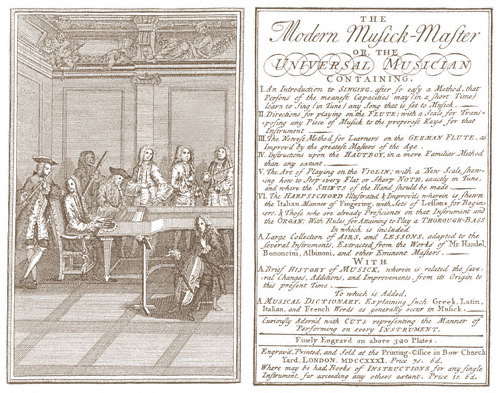 THE
Modern Musick-Master
OR, THE
UNIVERSAL MUSICIAN
CONTAINING,
I. An Introduction to SINGING, after so easy a Method, that
Persons of the meanest Capacities may (in a short Time)
learn to Sing (in Tune) any Song that is set to Musick.
II. Directions for playing on the FLUTE; with a Scale for Trans-
posing any Piece of Musick to the properest Keys for that
Instrument
III. The Newest Method for Learners on the GERMAN FLUTE, as
Improv'd by the greatest Masters of the Age.
IV. Instructions upon the HAUTBOY, in a more Familiar Method
than any extant
V. The Art of Playing on the VIOLIN; with a New Scale, shew-
ing how to Stop every Flat or Sharp NOTE, exactly in Tune,
and where the SHIFTS of the Hand should be made
VI. The HARPSICHORD Illustrated & Improv'd, wherein is shewn
the Italian Manner of Fingering, with Sets of Lessons for Begin-
ners, & Those who are already Proficients on that Instrument and
the ORGAN; With Rules for Attaining to Play a THOROUGH-BASS
In which is included
A Large Collection of AIRS, and LESSONS, adapted to the
several Instruments, Extracted from the Works of Mr. Handel,
Bononcini, Albinoni, and other Eminent Masters
WITH
A Brief HISTORY of MUSICK, wherein is related the seve-
ral Changes, Additions, and Improvements, from its Origin to
this present Time
To which is Added,
A MUSICAL DICTIONARY, Explaining such Greek, Latin,
Italian, and French Words as generally occur in Musick.
Curiously Adorn'd with CUTS representing the Manner of
Performing on every INSTRUMENT.
Finely Engrav'd on above 320 Plates.
Engrav'd, Printed, and Sold at the Printing-Office in Bow Church
Yard, LONDON. MDCCXXXI. Price 7s. 6d.
Where may be had, Books of INSTRUCTIONS for any single
Instrument, far exceeding any others extant, Price 1s. 6d.